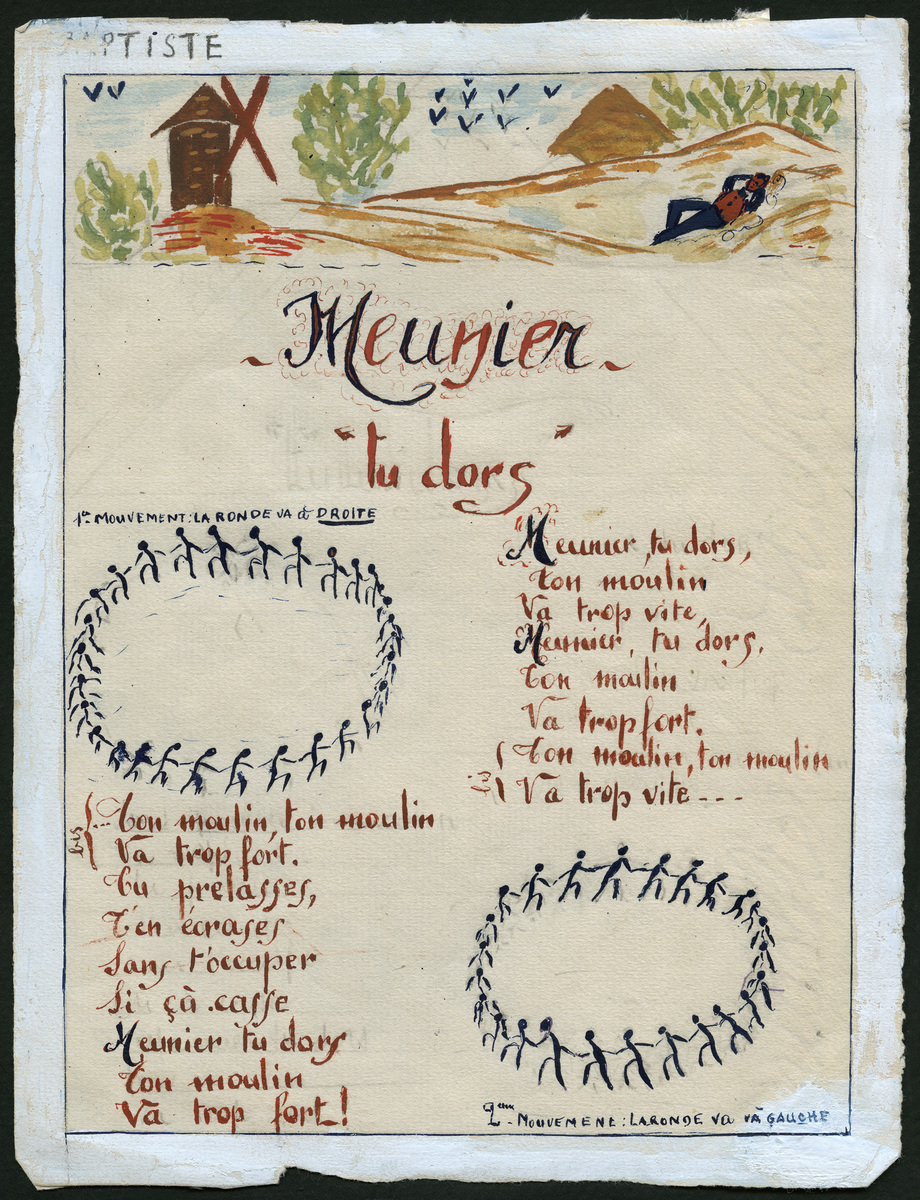 BAPTISTE
- Meunier -
"tu dors"
1er MOUVEMENT: LA RONDE VA à DROITE
"Meunier, tu dors,
Ton moulin
Va trop vite,
Meunier, tu dors,
Ton moulin
Va trop fort.
Ton moulin, ton moulin
bis
Va trop vite - - -
Ton moulin, ton moulin
bis
Va trop fort.
Tu prélasses,
T'en écrases
Sans t'occuper
Si çà casse
Meunier tu dors
Ton moulin
Va trop fort!
2ème MOUVEMENT: LA RONDE VA VA GAUCHE